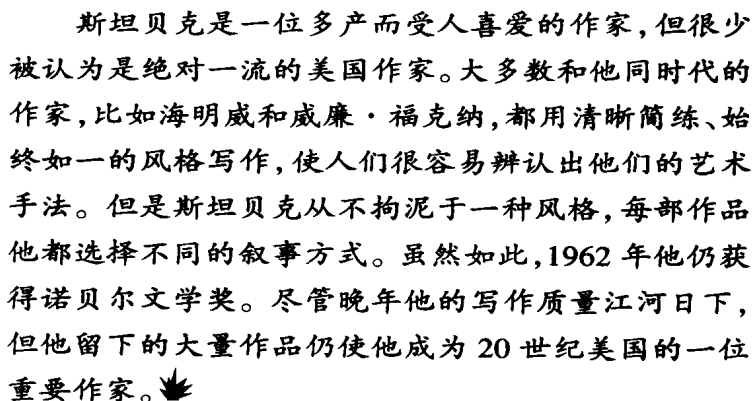 斯坦贝克是一位多产而受人喜爱的作家,但很少
被认为是绝对一流的美国作家。大多数和他同时代的
作家,比如海明威和威廉·福克纳,都用清晰简练、始
终如一的风格写作,使人们很容易辨认出他们的艺术
手法。但是斯坦贝克从不拘泥于一种风格,每部作品
他都选择不同的叙事方式。虽然如此,1962 年他仍获
得诺贝尔文学奖。尽管晚年他的写作质量江河日下,
但他留下的大量作品仍使他成为 20 世纪美国的一位
重要作家。